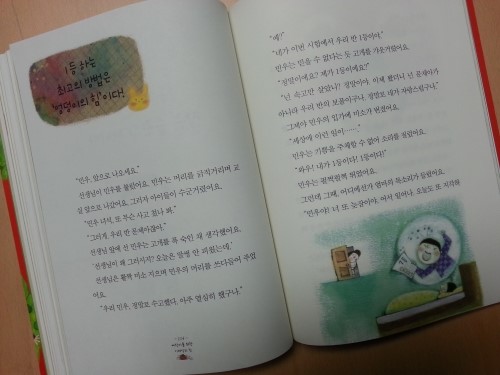 1등 하는
최고의 방법은
'엉덩이의 힘'이다!
"민우, 앞으로 나오세요."
선생님이 민우를 불렀어요. 민우는 머리를 긁적거리며 교
실 앞으로 나갔어요. 그러자 아이들이 수군거렸어요.
"민우 녀석, 또 무슨 사고 쳤나 봐."
"그러게, 우리 반 문제아잖아."
선생님 앞에 선 민우는 고개를 푹 숙인 채 생각했어요.
'선생님이 왜 그러시지? 오늘은 말썽 안 피웠는데.'
선생님은 활짝 미소 지으며 민우의 머리를 쓰다듬어 주었
어요.
"우리 민우, 정말로 수고했다. 아주 열심히 했구나."
"예?"
"네가 이번 시험에서 우리 반 1등이야."
민우는 믿을 수 없다는 듯 고개를 갸웃거렸어요.
"정말이에요? 제가 1등이에요?"
"넌 속고만 살았니? 정말이야. 이제 했더니 넌 문제아가
아니라 우리 반의 보물이구나. 정말로 네가 자랑스럽구나."
그제야 민우의 입가에 미소가 번졌어요.
"세상에 이런 일이……."
민우는 기쁨을 주체할 수 없어 소리를 질렀어요.
"와우! 내가 1등이다! 1등이다!"
민우는 펄쩍펄쩍 뛰었어요.
그런데 그때, 어디에선가 엄마의 목소리가 들렸어요.
"민우야! 너 또 늦잠이야. 어서 일어나. 오늘도 또 지각해